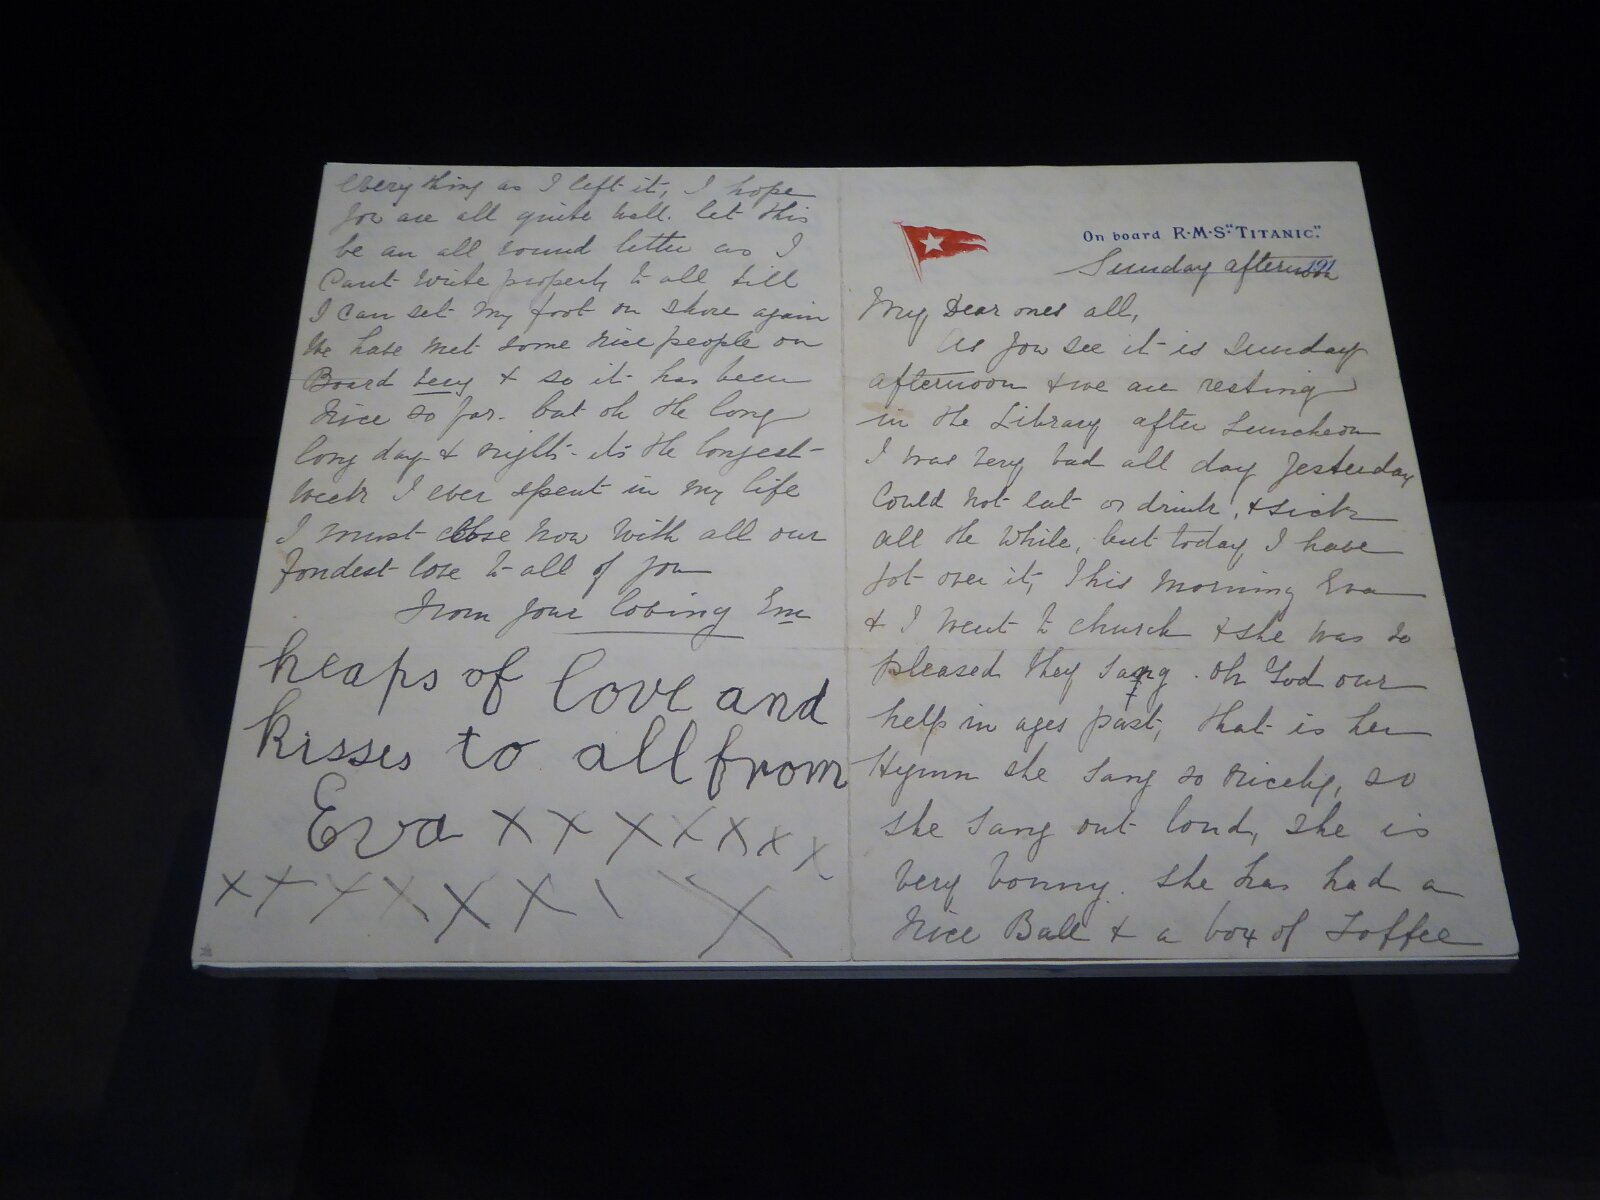 everything as I left it, I hope
you are all quite well. let this
be an all round letter as I
Cant write properly to all till
I can set my foot on shore again
We have met some nice people on
Board very & so it has been
nice so far. but oh the long
long day & nights - its the longest
week I ever spent in my life
I must close now with all our
fondest love to all of you
From your loving Em
heaps of love and
kisses to all from
Eva x x x x x x x
x x x x x x \ x
On board R·M·S·"TITANIC".
Sunday afternoon 191
My Dear ones all,
As you see it is Sunday
afternoon & we are resting
in the Library after Luncheon
I was very bad all day yesterday
Could not eat or drink, & sick
all the while, but today I have
got over it, This morning Eva
& I went to church & she was so
pleased they sang . oh God our
help in ages past, that is her
Hymn she sang so nicely, so
she sang out loud, she is
very bonny. she has had a
nice Ball & a box of Toffee